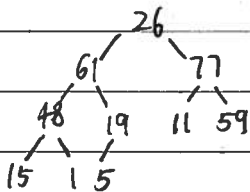 26
61 77
48 19 11 59
15 1 5